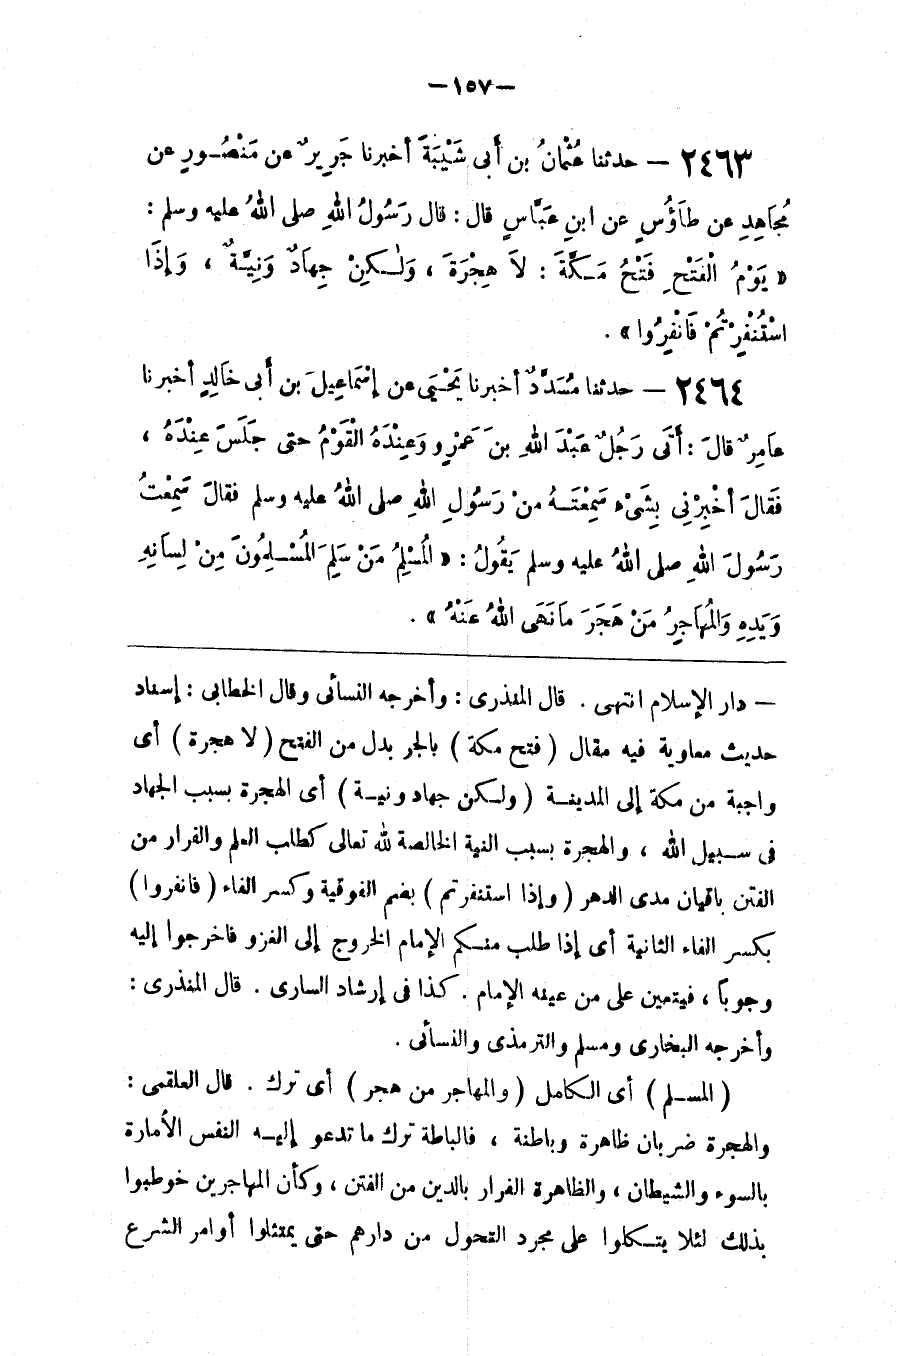 —١٥٧—
٢٤٦٣ — حدثنا عُثْمَانُ بن أَبى شَيْبَةَ أخبرنا جَرِيرٌ عن مَنْصُورٍ عن
مُجَاهِدٍ عن طَاوُسٍ عن ابنِ عَبَّاسٍ قال : قال رَسُولُ اللهِ صلى اللهُ عليه وسلم :
« يَوْمُ الْفَتْحِ فَتْحُ مَكَّةَ : لاَ هِجْرَةَ ، وَلٰكِنْ جِهادٌ وَنِيَّةٌ ، وَإِذَا
اسْتُنْفِرْتُمْ فَانْفِرُوا » .
٢٤٦٤ — حدثنا مُسَدَّدٌ أخبرنا يَحْيَى عن إِسْمَاعِيلَ بن أَبى خَالِدٍ أخبرنا
عامِرٌ قالَ : أَتَى رَجُلٌ عَبْدَ اللهِ بنَ عَمْرٍو وَعِنْدَهُ القَوْمُ حتى جَلَسَ عِنْدَهُ ،
فَقَالَ أخْبِرْنِى بِشَىْءٍ سَمِعْتَهُ منْ رَسُولِ اللهِ صلى اللهُ عليه وسلم فقالَ سَمِعْتُ
رَسُولَ اللهِ صلى اللهُ عليه وسلم يَقُولُ : « الْمُسْلِمُ مَنْ سَلِمَ الْمُسْلِمُونَ مِنْ لِسَانِهِ
وَيَدِهِ وَالْمُهَاجِرُ مَنْ هَجَرَ مَا نَهَى اللهُ عَنْهُ » .
— دار الإسلام انتهى . قال المنذرى : وأخرجه النسائى وقال الخطابى : إسناد
حديث معاوية فيه مقال ( فتح مكة ) بالجر بدل من الفتح ( لا هجرة ) أى
واجبة من مكة إلى المدينة ( ولكن جهاد ونية ) أى الهجرة بسبب الجهاد
فى سبيل الله ، والهجرة بسبب النية الخالصة لله تعالى كطلب العلم والفرار من
الفتن باقيان مدى الدهر ( وإذا استنفرتم ) بضم الفوقية وكسر الفاء ( فانفروا )
بكسر الفاء الثانية أى إذا طلب منكم الإمام الخروج إلى الغزو فاخرجوا إليه
وجوباً ، فيتعين على من عينه الإمام . كذا فى إرشاد السارى . قال المنذرى :
وأخرجه البخارى ومسلم والترمذى والنسائى .
( المسلم ) أى الكامل ( والمهاجر من هجر ) أى ترك . قال العلقمى :
والهجرة ضربان ظاهرة وباطنة ، فالباطة ترك ما تدعو إليه النفس الأمارة
بالسوء والشيطان ، والظاهرة الفرار بالدين من الفتن ، وكأن المهاجرين خوطبوا
بذلك لئلا يتكلوا على مجرد التحول من دارهم حتى يمتثلوا أوامر الشرع